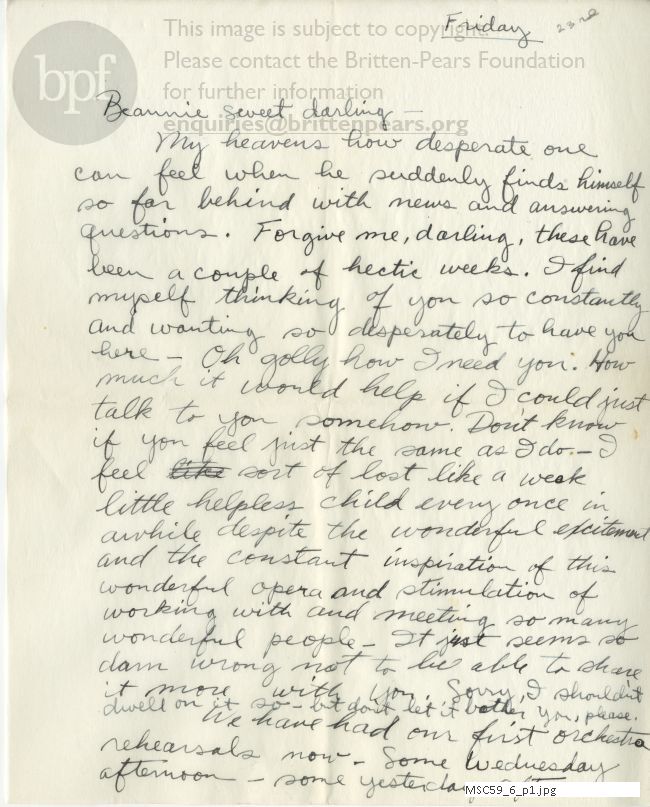 This image is subject to copyright.
Please contact the Britten-Pears Foundation
for further information
enquiries@brittenpears.org
bpf
Friday 23rd
Beannie sweet darling —
My heavens how desperate one
can feel when he suddenly finds himself
so far behind with news and answering
questions. Forgive me, darling, these have
been a couple of hectic weeks. I find
myself thinking of you so constantly
and wanting so desperately to have you
here — Oh golly how I need you. How
much it would help if I could just
talk to you somehow. Don't know
if you feel just the same as I do — I
feel like sort of lost like a weak
little helpless child every once in
awhile despite the wonderful excitement
and the constant inspiration of this
wonderful opera and stimulation of
working with and meeting so many
wonderful people — It just seems so
darn wrong not to be able to share
it more with you. Sorry, I shouldn't
dwell on it so — but don't let it bother you, please.
We have had our first orchestra
rehearsals now — Some Wednesday
afternoon — some yesterday
MSC59_6_p1.jpg